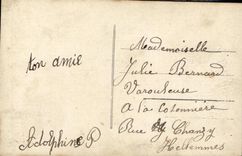 ton amie
Adolphine P
Mademoiselle
Julie Bernard
Varouleuse
A la Cotonnière
Rue Chanzy
Hellemmes